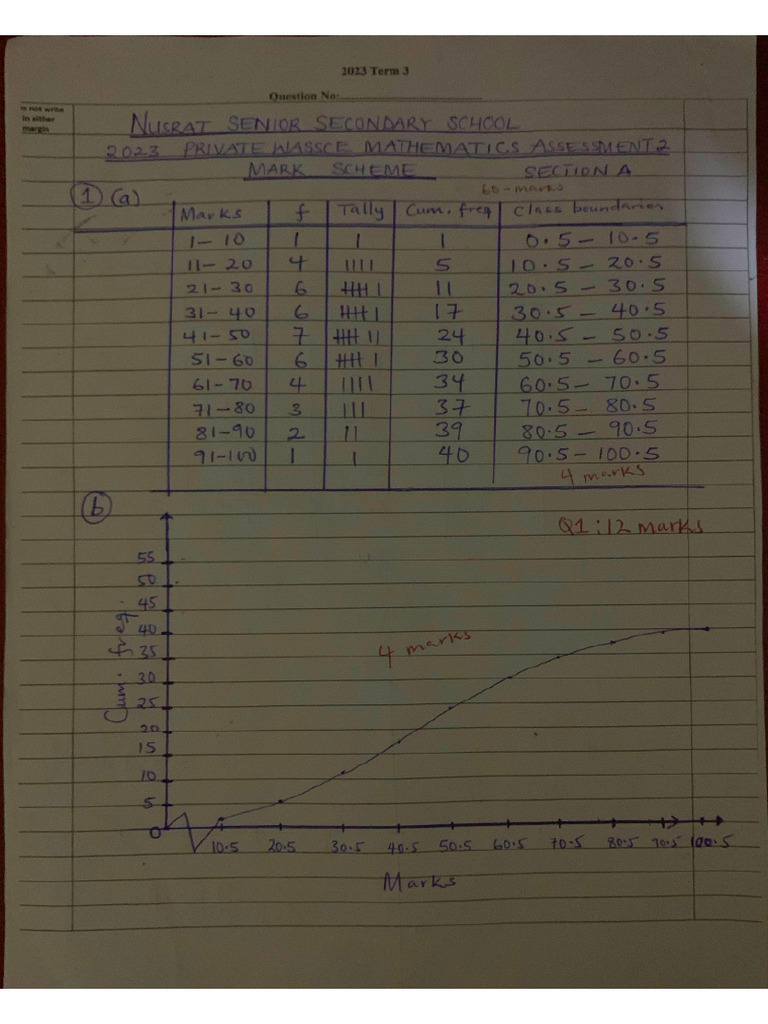 2023 Term 3
Question No:
n not write
in either
margin
NUSRAT SENIOR SECONDARY SCHOOL
2023 PRIVATE WASSCE MATHEMATICS ASSESSMENT 2
MARK SCHEME SECTION A
60-marks
1 (a)
Marks f Tally Cum. freq Class boundaries
1-10 1 | 1 0.5 - 10.5
11-20 4 |||| 5 10.5 - 20.5
21-30 6 |||| | 11 20.5 - 30.5
31-40 6 |||| | 17 30.5 - 40.5
41-50 7 |||| || 24 40.5 - 50.5
51-60 6 |||| | 30 50.5 - 60.5
61-70 4 |||| 34 60.5 - 70.5
71-80 3 ||| 37 70.5 - 80.5
81-90 2 || 39 80.5 - 90.5
91-100 1 | 40 90.5 - 100.5
4 marks
b
Q1: 12 marks
55
50
45
40
35
30
25
20
15
10
5
0
Cum. freq.
4 marks
10.5 20.5 30.5 40.5 50.5 60.5 70.5 80.5 90.5 100.5
Marks